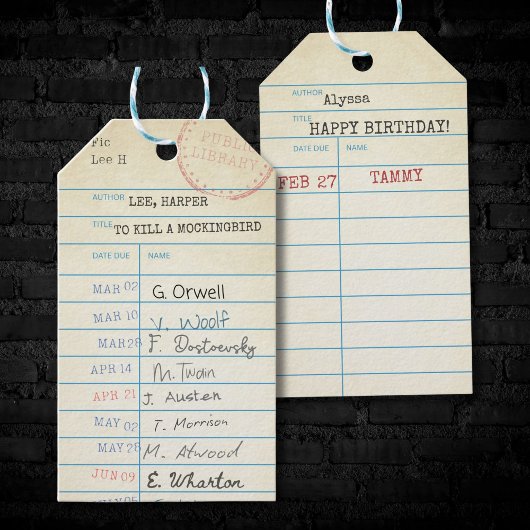 Fic
Lee H
PUBLIC
LIBRARY
AUTHOR LEE, HARPER
TITLE TO KILL A MOCKINGBIRD
DATE DUE NAME
MAR 02 G. Orwell
MAR 10 V. Woolf
MAR 28 F. Dostoevsky
APR 14 M. Twain
APR 21 J. Austen
MAY 02 T. Morrison
MAY 28 M. Atwood
JUN 09 E. Wharton
AUTHOR Alyssa
TITLE HAPPY BIRTHDAY!
DATE DUE NAME
FEB 27 TAMMY